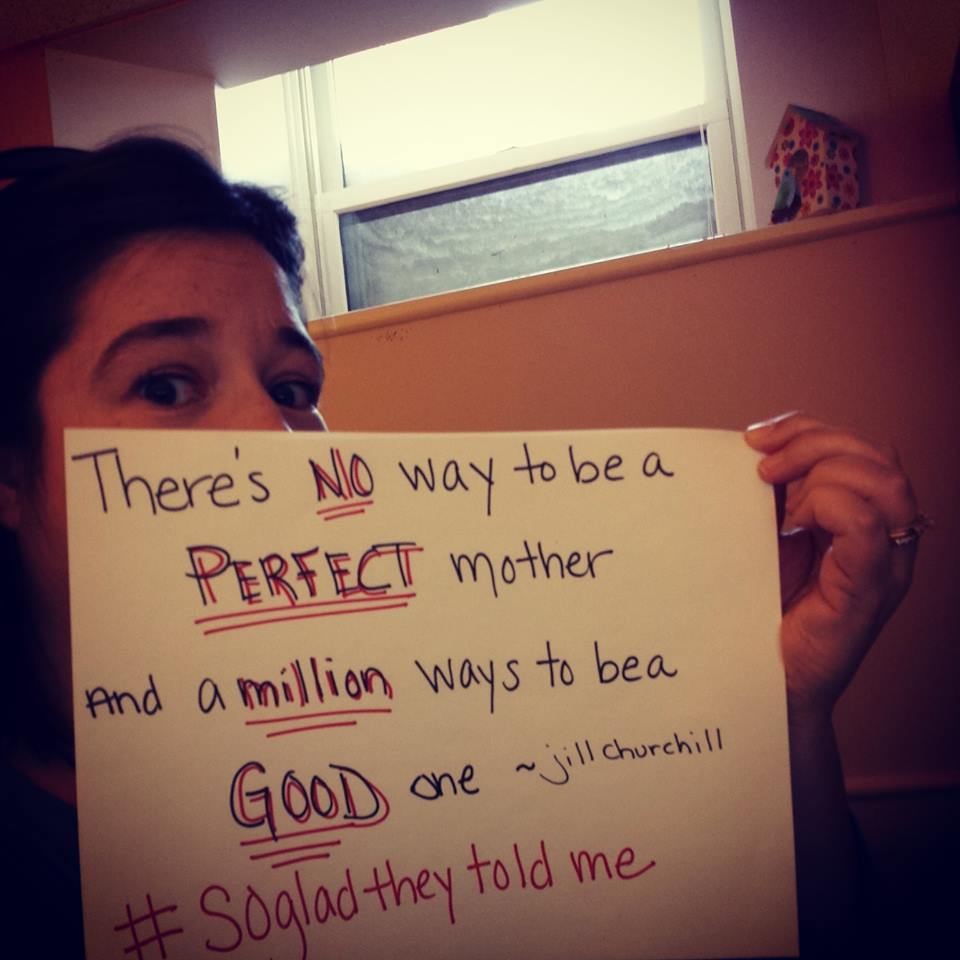 There's NO way to be a
PERFECT mother
And a million ways to be a
GOOD one ~jill churchill
#Soglad they told me